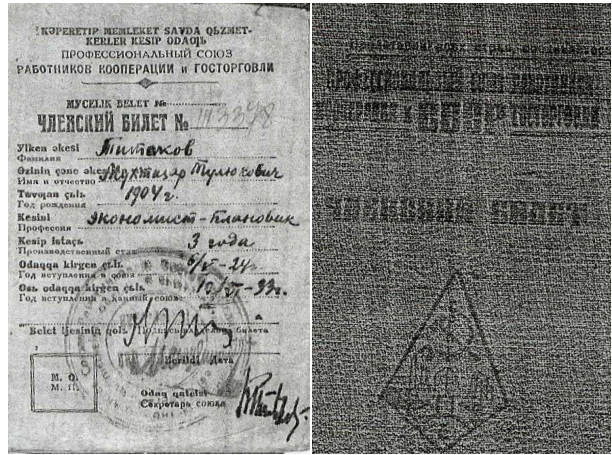 KƏPERETIP MEMLEKET SAVDA QЬZMET-
KERLER KESIP ODAƢЬ
ПРОФЕССИОНАЛЬНЫЙ СОЮЗ
РАБОТНИКОВ КООПЕРАЦИИ и ГОСТОРГОВЛИ
MYCELIK BELET №
ЧЛЕНСКИЙ БИЛЕТ № 113398
Ylken əkesi
Фамилия Титаков
Əzinin çəne əkesi
Имя и отчество Мухтазар Тулюкович
Tuvƣan çьlь
Год рождения 1904 г.
Kesibi
Профессия экономист-плановик
Kesip istaçь
Производственный стаж 3 года
Odaqqa kirgen çьlь
Год вступления в союз
Osь odaqqa kirgen çьlь
Год вступления в данный союз
Belet ijesinin qolь Подпись владельца билета
Berildi Дата
M. O.
М. П.
Odaq qatcьsь
Секретарь союза
ПРОФЕССИОНАЛЬНЫЙ СОЮЗ РАБОТНИКОВ
КООПЕРАЦИИ и СССР ГОСТОРГОВЛИ
ЧЛЕНСКИЙ БИЛЕТ